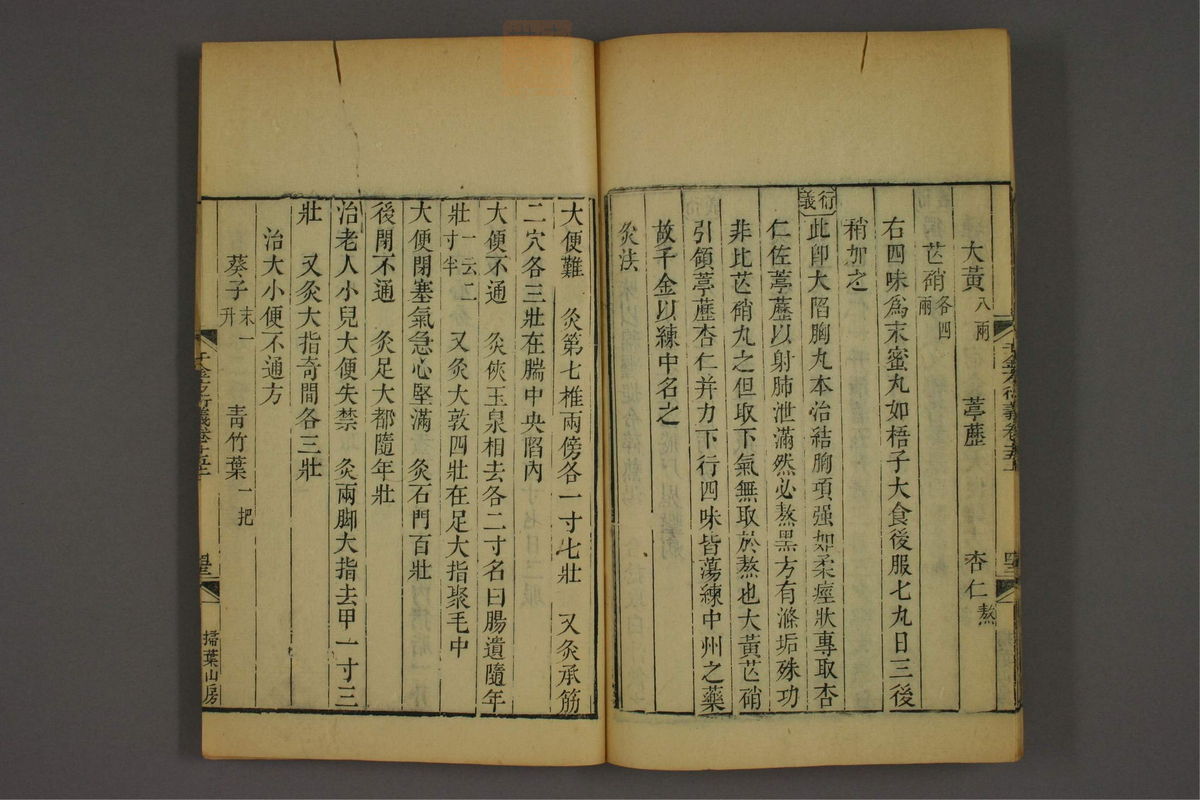 大黃八兩 葶藶 杏仁熬
芒硝各四兩
右四味爲末蜜丸如梧子大食後服七丸日三後
稍加之
衍義 此卽大陷胸丸本治結胸項强如柔痙狀專取杏
仁佐葶藶以射肺泄滿然必熬黑方有滌垢殊功
非比芒硝丸之但取下氣無取於熬也大黃芒硝
引領葶藶杏仁并力下行四味皆蕩練中州之藥
故千金以練中名之
灸法
大便難 灸第七椎兩傍各一寸七壯 又灸承筋
二穴各三壯在腨中央陷內
大便不通 灸俠玉泉相去各二寸名曰腸遺隨年
壯一云二寸半 又灸大敦四壯在足大指聚毛中
大便閉塞氣急心堅滿 灸石門百壯
後閉不通 灸足大都隨年壯
治老人小兒大便失禁 灸兩脚大指去甲一寸三
壯 又灸大指奇間各三壯
治大小便不通方
葵子末一升 靑竹葉一把
千金方衍義卷十五
掃葉山房